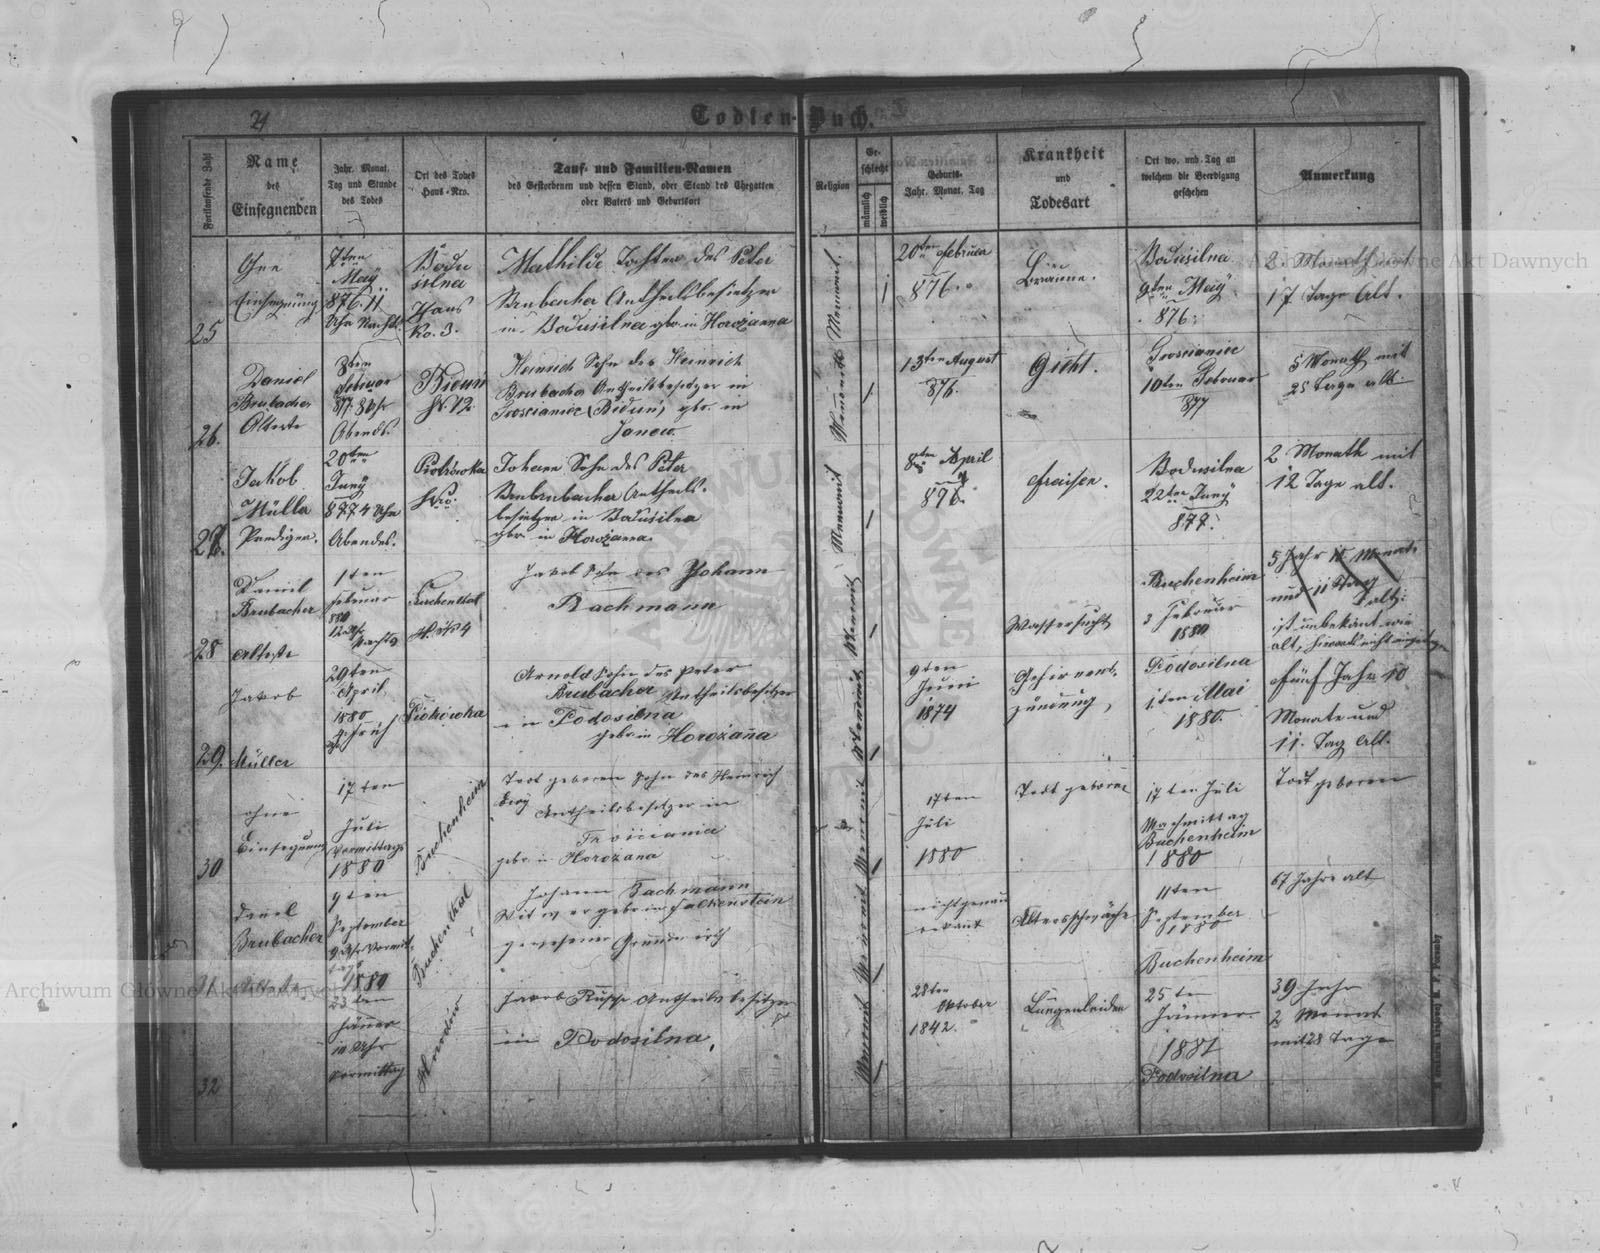 24
Todten-Buch.
Fortlaufende Zahl
Name
des
Einsegnenden
Jahr, Monat,
Tag und Stunde
des Todes
Ort des Todes
Haus-Nro.
Tauf- und Familien-Namen
des Gestorbenen und dessen Stand, oder Stand des Ehegatten
oder Vaters und Geburtsort
Religion
Ge-
schlecht
männlich
weiblich
Geburts-
Jahr, Monat, Tag
Krankheit
und
Todesart
Ort wo, und Tag an
welchem die Beerdigung
geschehen
Anmerkung
25
Einsegnung
7ten
May
876. 11
Uhr Nachts
Bodu
silna
Haus
No. 3.
Mathilde Tochter des Peter
Brubacher Antheilsbesietzer
in Bodusilna gbr. in Horożanna
Mennonit
20ten Februar
876.
Bräune.
Bodusilna
9ten May
876.
2 Monath mit
17 Tage Alt.
26.
Daniel
Brubacher
Älteste
8ten
Februar
877. 8 Uhr
Abends.
Bidun
N. 12
Heinrich Sohn des Heinrich
Brubacher Antheilsbesitzer in
Trosscianiec (Bidun) gbr. in
Janow.
Mennonit
13ten August
876.
Gicht.
Trosscianiec
10ten Februar
877
5 Monath mit
25 Tage alt.
27.
Jakob
Müller
Prediger.
20ten
Juny
877 4 Uhr
Abendes.
Piotrówka
Nro.
Johann Sohn des Peter
Brubacher Antheils-
besietzer in Bodusilna
gbr. in Horożanna.
Mennonit
8ten April
Fraisen.
Bodusilna
22ten Juny
877.
2 Monath mit
12 Tage alt.
28
Daniel
Brubacher
Älteste
1ten
Februar
880
12 Uhr
Nachts
Buchenthal
N. 4
Jakob Sohn des Johann
Bachmann
Mennonit
Wassersucht
Buchenheim
3 Februar
1880
5 Jahr Monat
und 11 Tag
alt
ist unbekant wie
alt,
29.
Jakob
Müller
29ten
April
1880
früh
Piotrówka
Arnold Sohn des Peter
Brubacher Antheilsbesitzer
in Podosilna
gebr. in Horożanna
Mennonit
9ten
Juni
1874
Gehirnent-
zündung,
Podosilna
1ten Mai
1880.
fünf Jahr 10
Monate und
11. Tag alt.
30
ohne
Einsegnung
17ten
Juli
Vormittags
1880
Buchenheim
Todt geboren Sohn des Heinrich
Antheilsbesitzer in
gebr. in Horożana
Mennonit
17ten
Juli
1880
Todt geboren
17ten Juli
Nachmittag
Buchenheim
1880
Todt geboren
31
Daniel
Brubacher
Älteste
9ten
September
9 Uhr Vormit-
tags
1880
Buchenthal
Johann Bachmann
Witwer gebr. in Falkenstein
gewesener Grundwirth
Mennonit
nicht genau
bekant
Altersschwäche
11ten
September
1880
Buchenheim
67 Jahre alt
32
23ten
Jänner
10 Uhr
Vormittag
Horodów
Jakob Rupp Antheilsbesitzer
in Podosilna,
Mennonit
28ten
Oktober
1842.
Lungenleiden
25ten
Jänner
1881
Podosilna
39 Jahr
2 Monat
mit 28 Tage
Archiwum Główne Akt Dawnych
Archiwum Główne Akt Dawnych